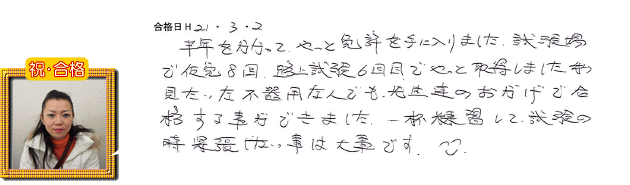 合格日H 21・3・2
半年を分かって、やっと免許を手に入りました。試験場
で仮免8回、路上試験6回目でやっと取得しました。私
見たいな不器用な人でも、先生達のおかげで合
格する事ができました。一杯練習して、試験の
時緊張しない事は大事です。
祝・合格